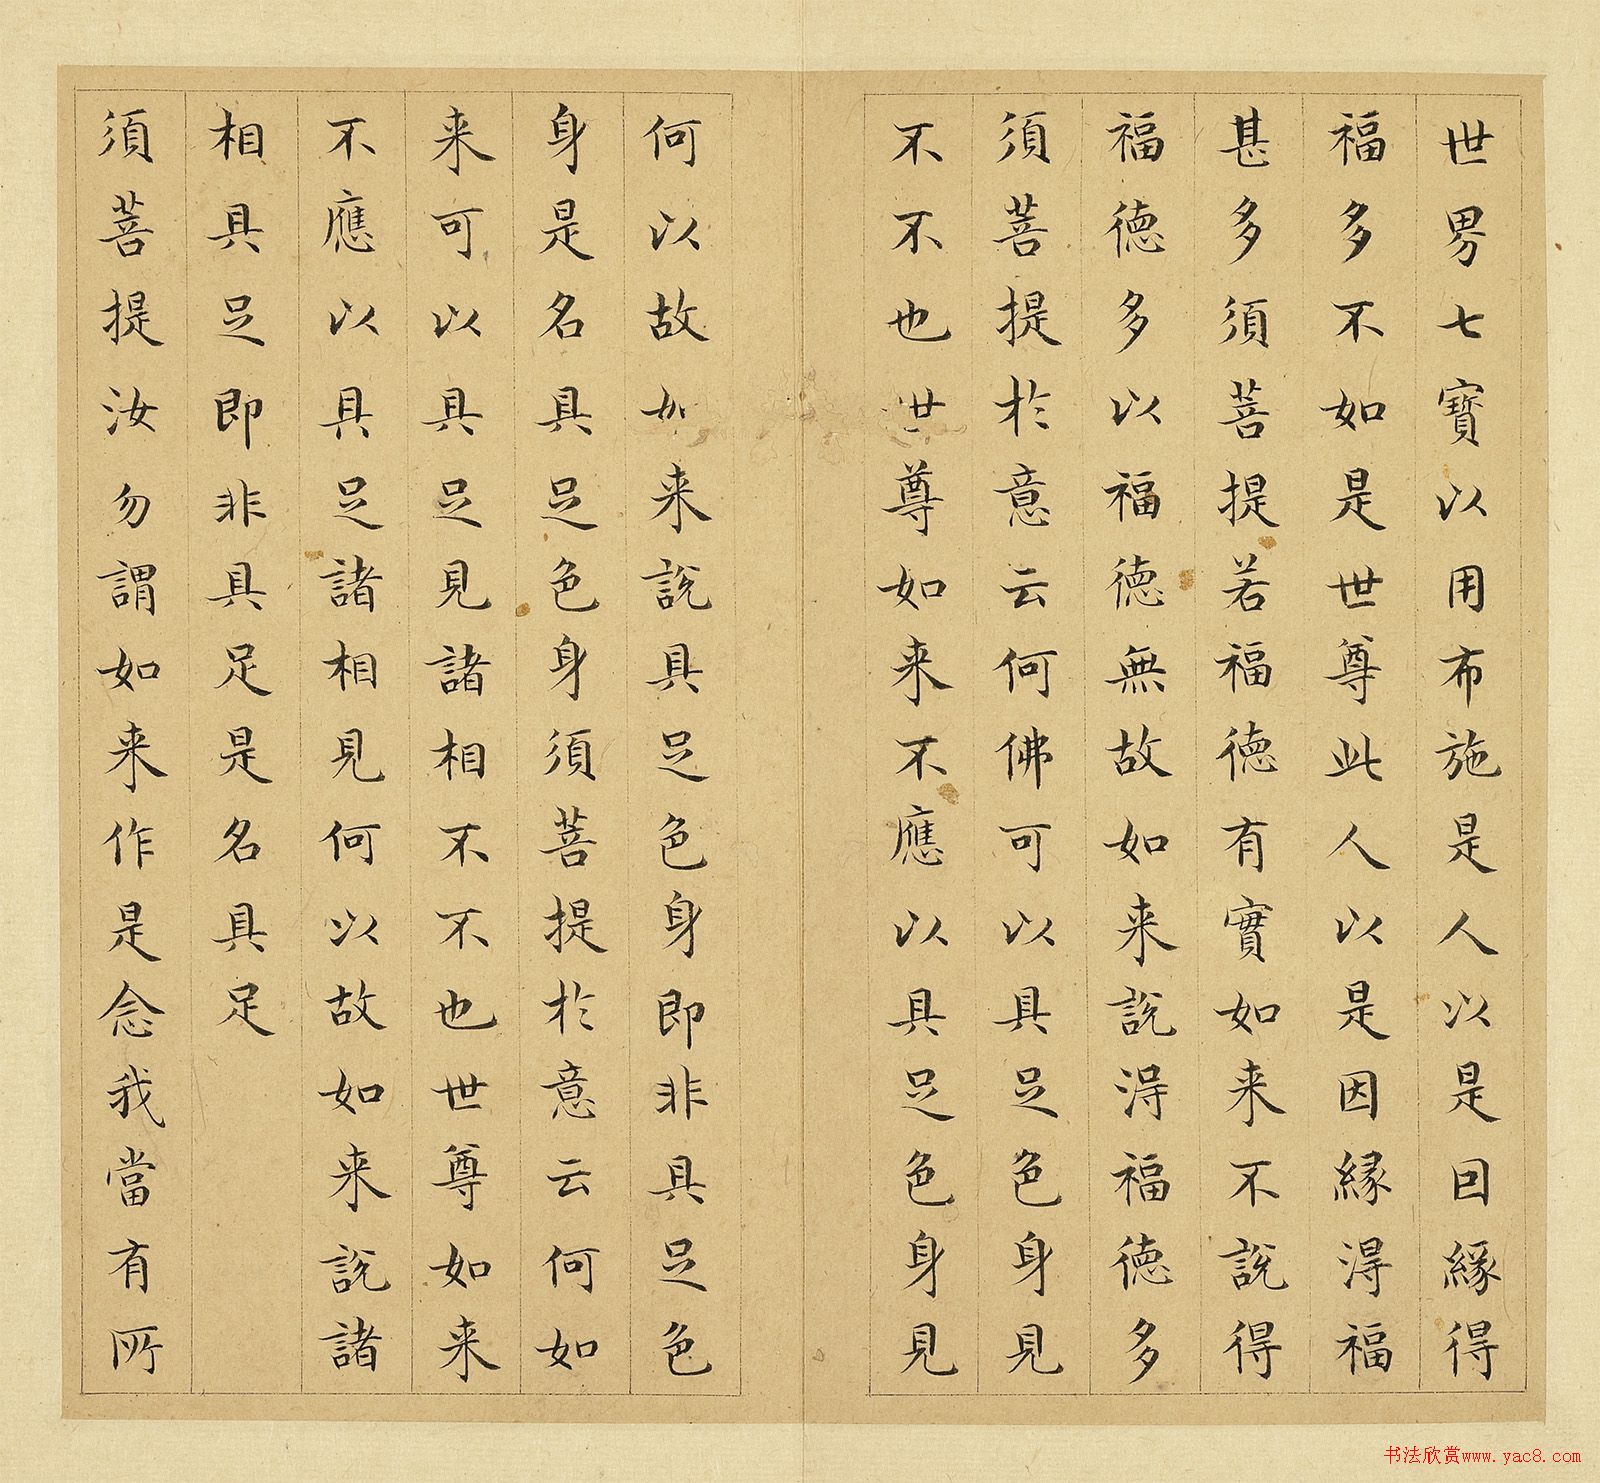 世界七寶以用布施是人以是囙緣得
福多不如是世尊此人以是因緣得福
甚多須菩提若福德有實如来不說得
福德多以福德無故如来說得福德多
須菩提於意云何佛可以具足色身見
不不也世尊如来不應以具足色身見
何以故如来說具足色身即非具足色
身是名具足色身須菩提於意云何如
来可以具足見諸相不不也世尊如来
不應以具足諸相見何以故如来說諸
相具足即非具足是名具足
須菩提汝勿謂如来作是念我當有所
书法欣赏www.yac8.com